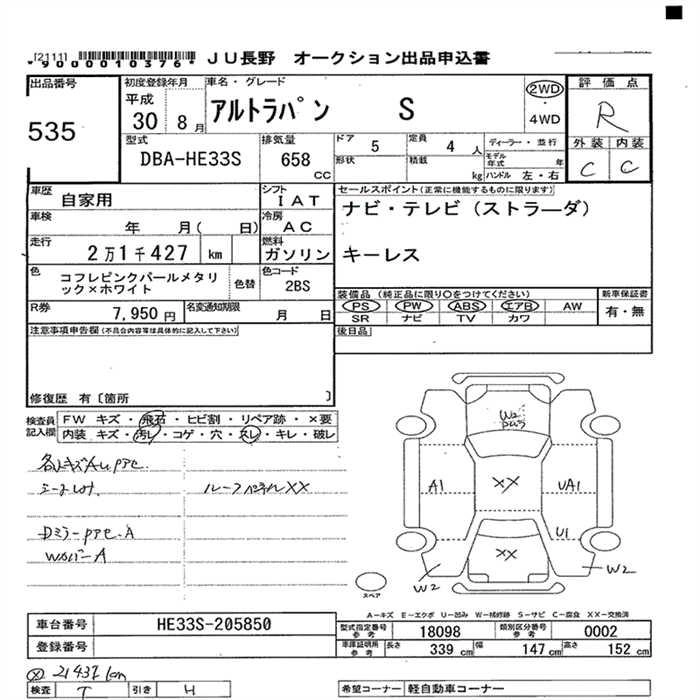 [2111]
*9000010376*
JU長野 オークション出品申込書
出品番号
535
初度登録年月
平成
30 8月
車名・グレード
アルトラパン S
2WD
・
4WD
評価点
R
外装 内装
C C
型式
DBA-HE33S
排気量
658
CC
ドア 5
形状
定員 4 人
積載 kg
ディーラー・並行
モデル年式 年
ハンドル 左・右
車歴
自家用
シフト
IAT
セールスポイント(正常に機能するものに限ります)
ナビ・テレビ(ストラーダ)
キーレス
車検
年 月( 日)
冷房
AC
走行
2万1千427 km
燃料
ガソリン
色
コフレピンクパールメタリ
ック×ホワイト
色替
色コード
2BS
R券
7,950 円
名変通知期限
月 日
装備品(純正品に限り○をつけてください)
PS PW ABS エアB AW
SR ナビ TV カワ
新車保証書
有・無
後日品
注意事項申告欄(不具合内容等は具体的に記入して下さい)
修復歴 有〔箇所 〕
検査員
記入欄
FW キズ・飛石・ヒビ割・リペア跡・×要
内装 キズ・汚レ・コゲ・穴・スレ・キレ・破レ
ルーフパネルXX
DミラーpアセA
W2
A1
XX
UA1
U1
XX
W2
W2
スペア
A-キズ E-エクボ U-凹み W-補修跡 S-サビ C-腐食 XX-交換済
車台番号
HE33S-205850
登録番号
型式指定番号
参考
18098
類別区分番号
参考
0002
車庫証明用
参考
長さ 339 cm 幅 147 cm 高さ 152 cm
21437 km
検査 T 引き H
希望コーナー 軽自動車コーナー